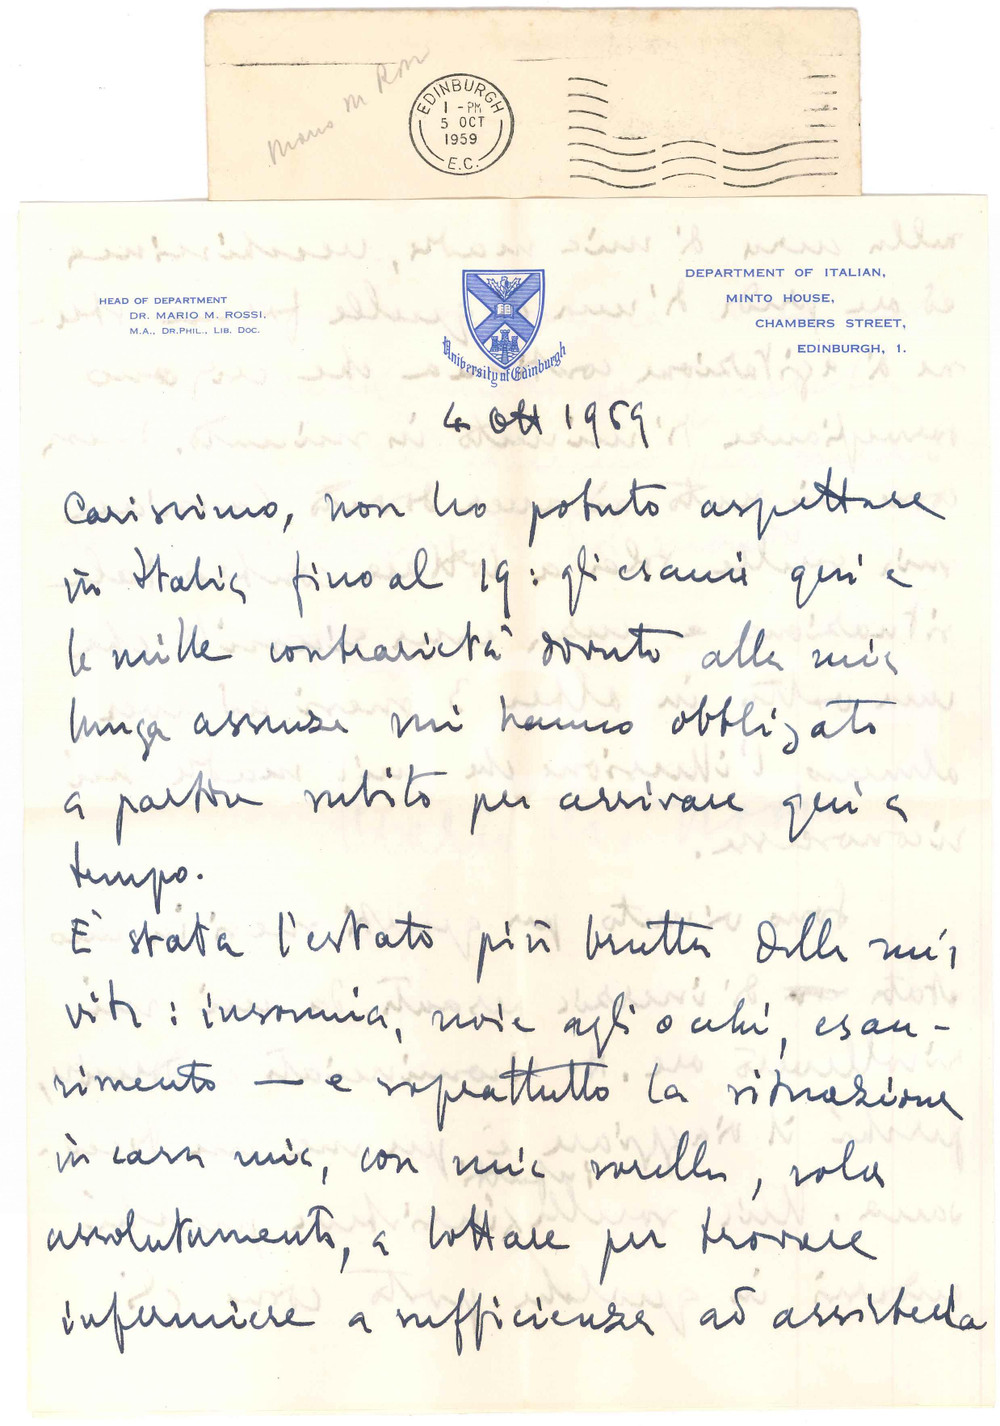 Mario M Rossi
EDINBURGH
1 - PM
5 OCT
1959
E.C.
HEAD OF DEPARTMENT
DR. MARIO M. ROSSI.
M.A., DR.PHIL., LIB. DOC.
University of Edinburgh
DEPARTMENT OF ITALIAN,
MINTO HOUSE,
CHAMBERS STREET,
EDINBURGH, 1.
4 Ott 1959
Carissimo, non ho potuto aspettare
in Italia fino al 19: gli esami qui e
le mille contrarietà dovute alla mia
lunga assenza mi hanno obbligato
a partire subito per arrivare qui a
tempo.
È stata l'estate più brutta della mia
vita: insonnia, noie agli occhi, esau-
rimento — e soprattutto la situazione
in casa mia, con mia sorella, sola
assolutamente, a lottare per trovare
infermiere a sufficienza ad assisterla